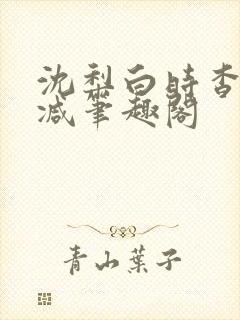 沈梨白時杳
减筆趣閣
青山葉子